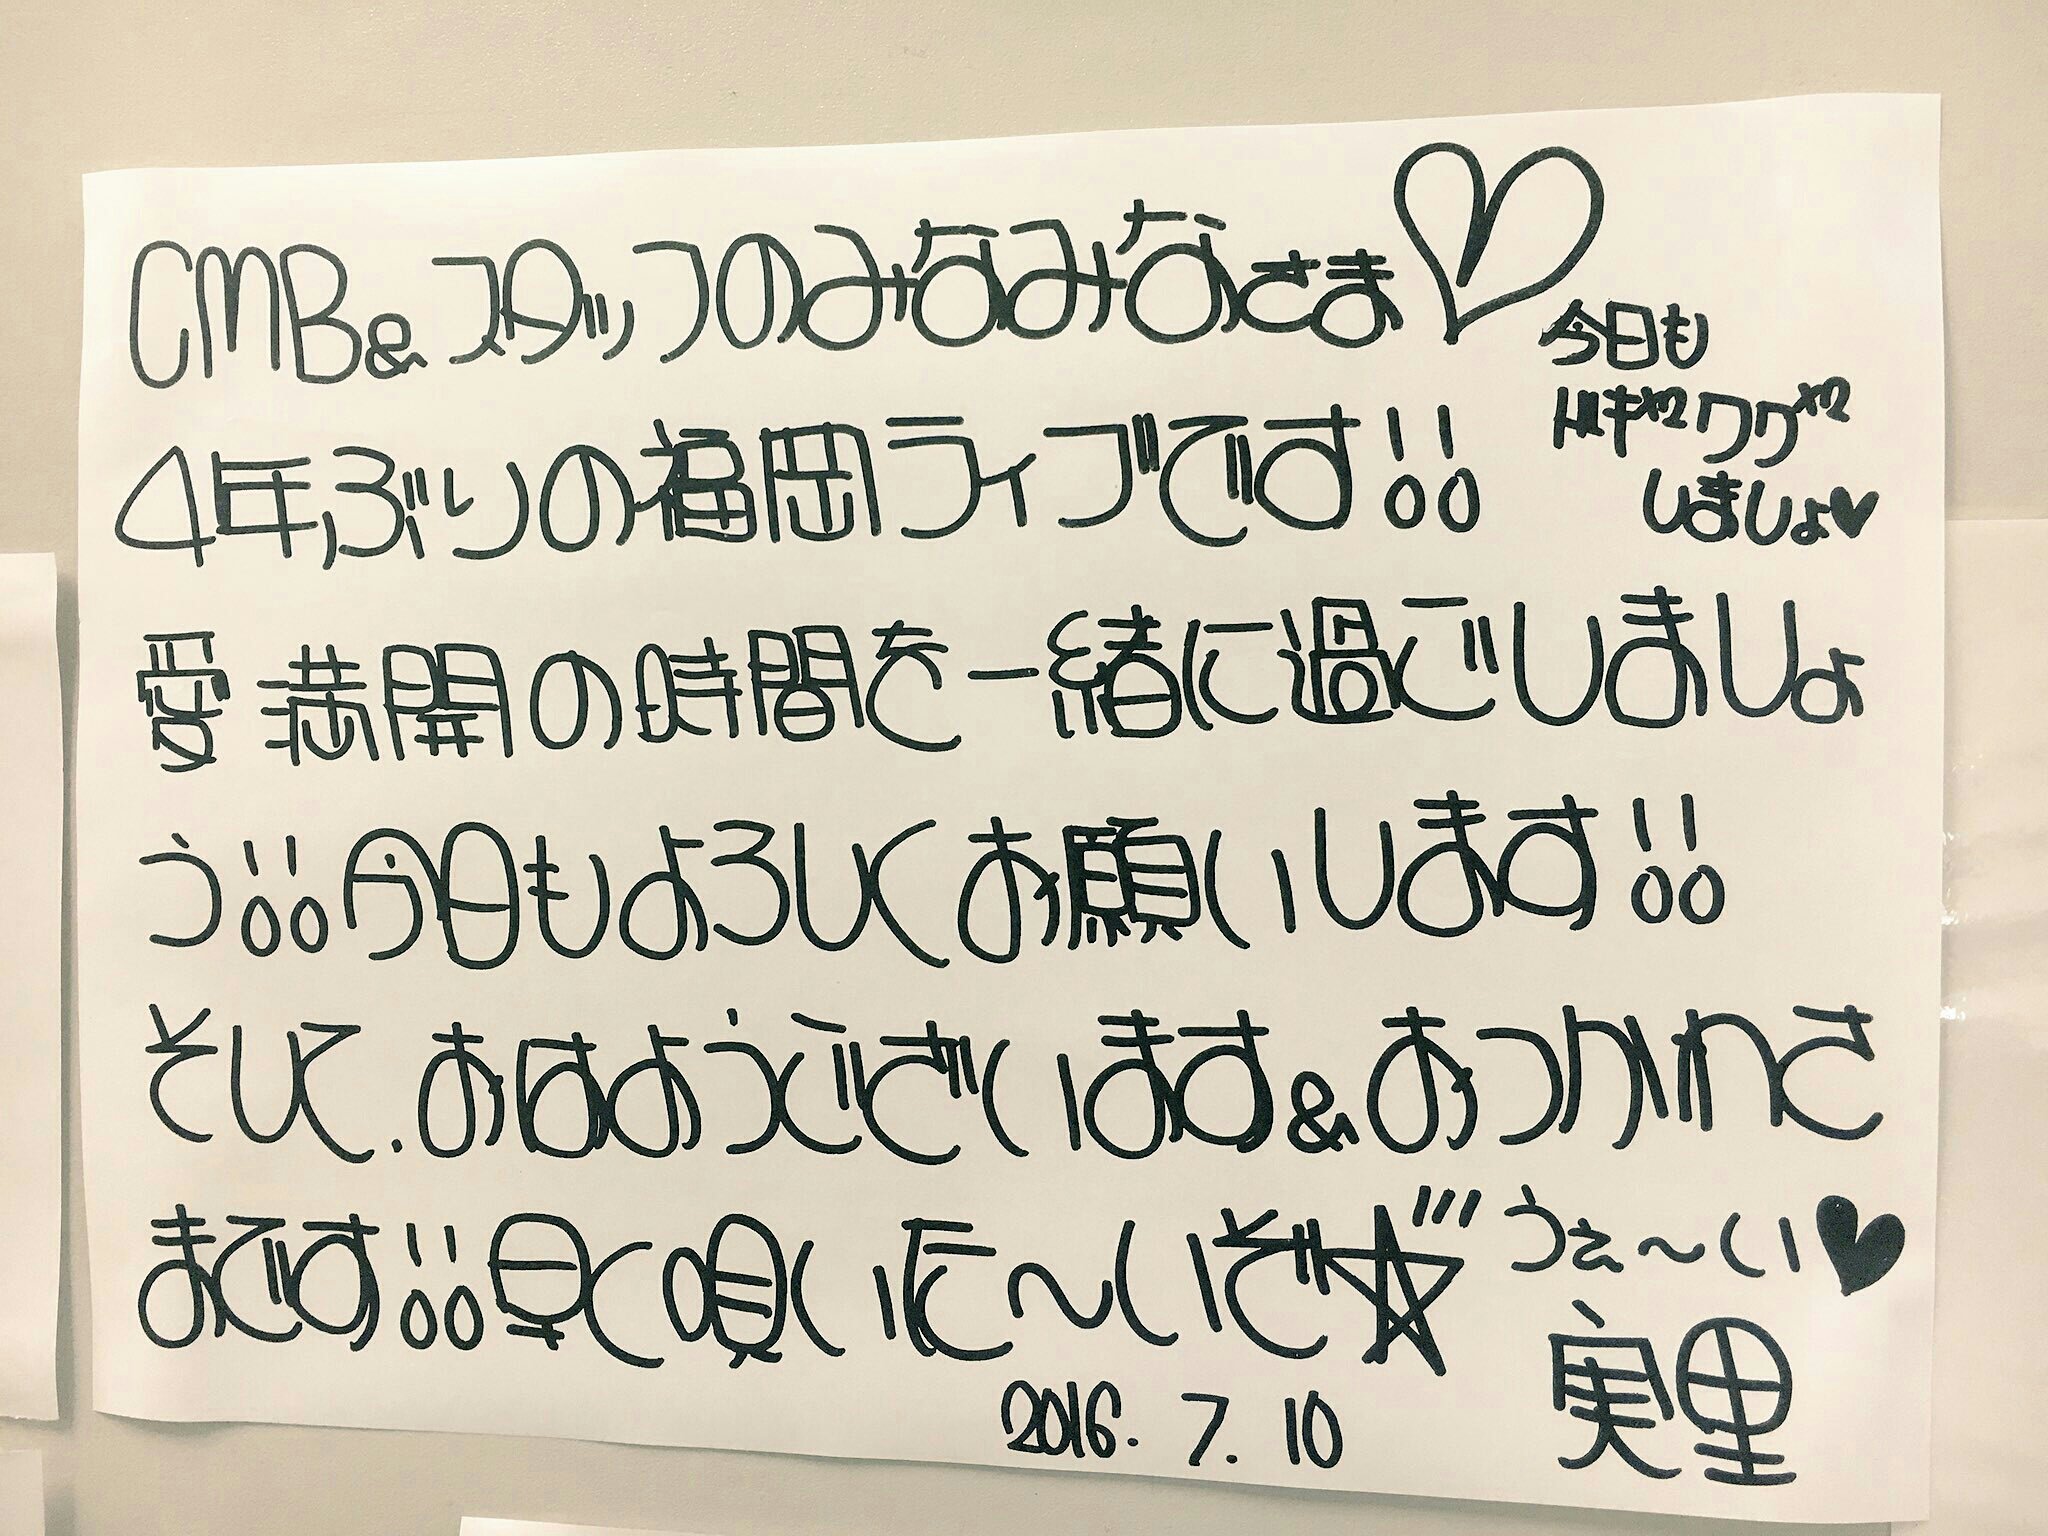 CMB&スタッフのみなみなさま♡
今日も
ドキ²ワク²
しましょ♥
4年ぶりの福岡ライブです!!
愛満開の時間を一緒に過ごしましょ
う!!今日もよろしくお願いします!!
そして、おはようございます&おつかれさ
まです!!早く唄いた〜いぞ☆
うぇ〜い♥
実里
2016.7.10